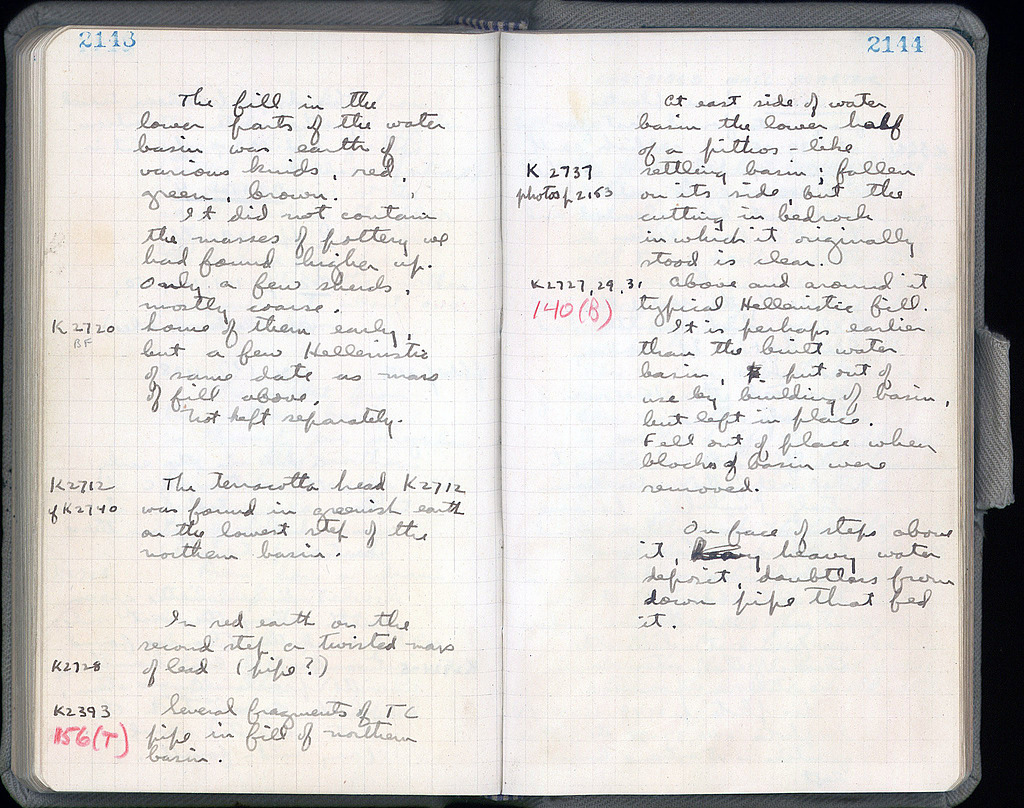 2143
The fill in the
lower parts of the water
basin was earth of
various kinds, red,
green, brown.
It did not contain
the masses of pottery we
had found higher up.
Only a few sherds,
mostly coarse.
K 2720 Some of them early,
BF
but a few Hellenistic
of same date as mass
of fill above.
Not kept separately.
K2712 The terracotta head K2712
cf K2740 was found in greenish earth
on the lowest step of the
northern basin.
In red earth on the
second step a twisted mass
K2728 of lead (pipe?)
K2393 Several fragments of TC
156(T) pipe in fill of northern
basin.
2144
At east side of water
basin the lower half
of a pithos-like
K 2737 settling basin; fallen
photos p 2153 on its side, but the
cutting in bedrock
in which it originally
stood is clear.
K2727, 29, 31 Above and around it
140(B) typical Hellenistic fill.
It is perhaps earlier
than the built water
basin, put out of
use by building of basin,
but left in place.
Fell out of place when
blocks of basin were
removed.
On face of steps above
it, heavy water
deposit, doubtless from
down pipe that fed
it.